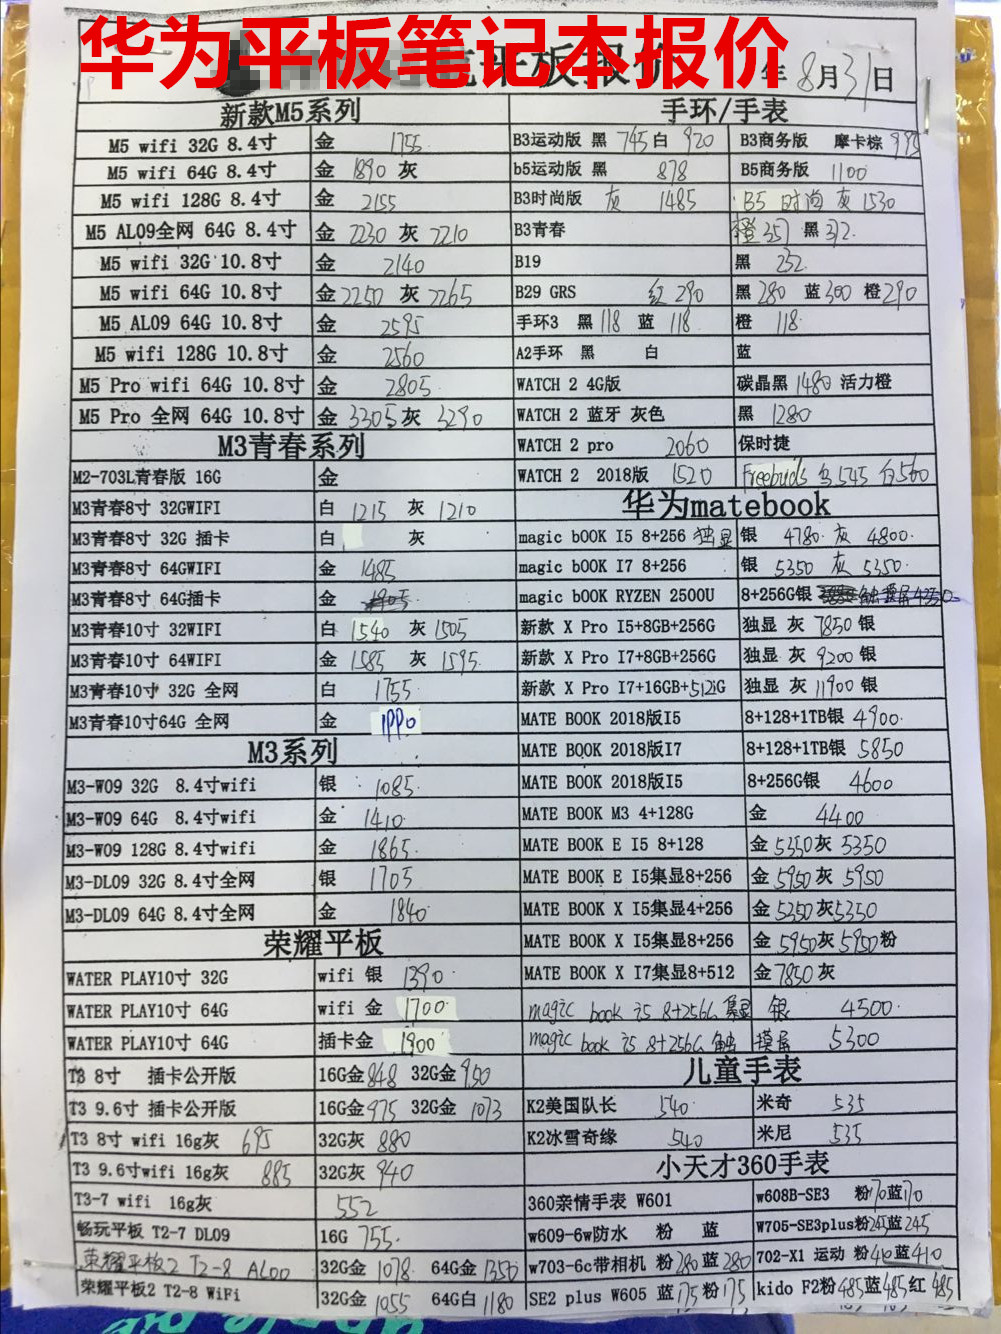 华为平板笔记本报价
年8月31日
新款M5系列
M5 wifi 32G 8.4寸 金 1755
M5 wifi 64G 8.4寸 金 1890 灰
M5 wifi 128G 8.4寸 金 2155
M5 AL09全网 64G 8.4寸 金 2230 灰 2210
M5 wifi 32G 10.8寸 金 2140
M5 wifi 64G 10.8寸 金 2250 灰 2265
M5 AL09 64G 10.8寸 金 2595
M5 wifi 128G 10.8寸 金 2560
M5 Pro wifi 64G 10.8寸 金 2805
M5 Pro 全网 64G 10.8寸 金 3305 灰 3290
M3青春系列
M2-703L青春版 16G 金
M3青春8寸 32GWIFI 白 1215 灰 1210
M3青春8寸 32G 插卡 白 灰
M3青春8寸 64GWIFI 金 1485
M3青春8寸 64G插卡 金
M3青春10寸 32WIFI 白 1540 灰 1505
M3青春10寸 64WIFI 金 1585 灰 1595
M3青春10寸 32G 全网 白 1755
M3青春10寸64G 全网 金
M3系列
M3-W09 32G 8.4寸wifi 银 1085
M3-W09 64G 8.4寸wifi 金 1410
M3-W09 128G 8.4寸wifi 金 1865
M3-DL09 32G 8.4寸全网 银 1705
M3-DL09 64G 8.4寸全网 金 1840
荣耀平板
WATER PLAY10寸 32G wifi 银 1390
WATER PLAY10寸 64G wifi 金 1700
WATER PLAY10寸 64G 插卡金 1900
T3 8寸 插卡公开版 16G金 848 32G金 950
T3 9.6寸 插卡公开版 16G金 975 32G金 1073
T3 8寸 wifi 16g灰 695 32G灰 880
T3 9.6寸wifi 16g灰 885 32G灰 940
T3-7 wifi 16g灰 552
畅玩平板 T2-7 DL09 16G 755
荣耀平板2 T2-8 AL00 32G金 1078 64G金 1350
荣耀平板2 T2-8 WiFi 32G金 1055 64G白 1180
手环/手表
B3运动版 黑 745 白 920 B3商务版 摩卡棕
b5运动版 黑 878 B5商务版 1100
B3时尚版 灰 1485 B5 时尚 灰 1530
B3青春 橙 357 黑 312
B19 黑 232
B29 GRS 红 290 黑 280 蓝 300 橙 290
手环3 黑 118 蓝 118 橙 118
A2手环 黑 白 蓝
WATCH 2 4G版 碳晶黑 1480 活力橙
WATCH 2 蓝牙 灰色 黑 1280
WATCH 2 pro 2060 保时捷
WATCH 2 2018版 1520 Freebuds 545 白 560
华为matebook
magic bOOK I5 8+256 独显 银 4780 灰 4800
magic bOOK I7 8+256 银 5350 灰 5350
magic bOOK RYZEN 2500U 8+256G银 触摸屏 4350
新款 X Pro I5+8GB+256G 独显 灰 7850 银
新款 X Pro I7+8GB+256G 独显 灰 9200 银
新款 X Pro I7+16GB+512G 独显 灰 11900 银
MATE BOOK 2018版I5 8+128+1TB银 4900
MATE BOOK 2018版I7 8+128+1TB银 5850
MATE BOOK 2018版I5 8+256G银 4600
MATE BOOK M3 4+128G 金 4400
MATE BOOK E I5 8+128 金 5350 灰 5350
MATE BOOK E I5集显8+256 金 5950 灰 5950
MATE BOOK X I5集显4+256 金 5350 灰 5350
MATE BOOK X I5集显8+256 金 5950 灰 5950 粉
MATE BOOK X I7集显8+512 金 7850 灰
magic book i5 8+256G 集显 银 4500
magic book i5 8+256G 触摸屏 5300
儿童手表
K2美国队长 540 米奇 535
K2冰雪奇缘 540 米尼 535
小天才360手表
360亲情手表 W601 w608B-SE3 粉 170 蓝 170
w609-6w防水 粉 蓝 W705-SE3plus粉 245 蓝 245
w703-6c带相机 粉 280 蓝 280 702-X1 运动 粉 410 蓝 410
SE2 plus W605 蓝 175 粉 175 kido F2粉 485 蓝 485 红 485